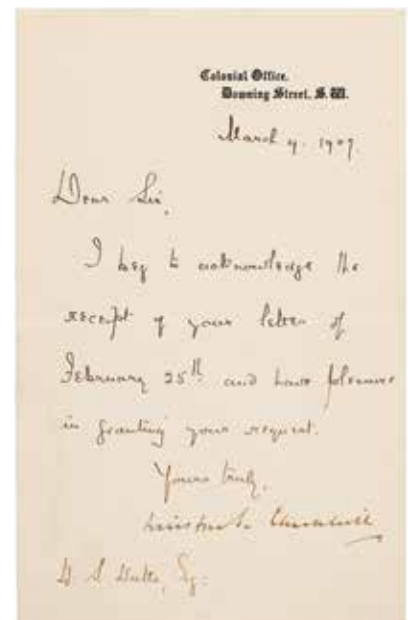 Colonial Office,
Downing Street, S.W.
March 4. 1907.
Dear Sir,
I beg to acknowledge the
receipt of your letter of
February 25th and have pleasure
in granting your request.
Yours truly,
Winston S. Churchill
Esq: